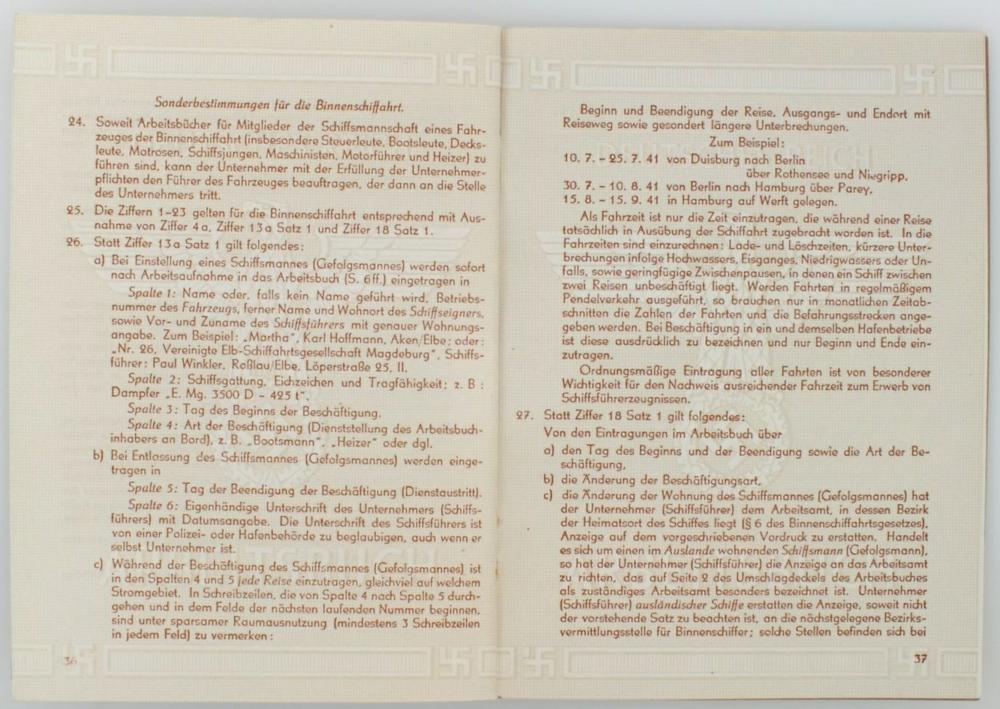 Sonderbestimmungen für die Binnenschiffahrt.
24. Soweit Arbeitsbücher für Mitglieder der Schiffsmannschaft eines Fahr-
zeuges der Binnenschiffahrt (insbesondere Steuerleute, Bootsleute, Decks-
leute, Matrosen, Schiffsjungen, Maschinisten, Motorführer und Heizer) zu
führen sind, kann der Unternehmer mit der Erfüllung der Unternehmer-
pflichten den Führer des Fahrzeuges beauftragen, der dann an die Stelle
des Unternehmers tritt.
25. Die Ziffern 1–23 gelten für die Binnenschiffahrt entsprechend mit Aus-
nahme von Ziffer 4a, Ziffer 13a Satz 1 und Ziffer 18 Satz 1.
26. Statt Ziffer 13a Satz 1 gilt folgendes:
a) Bei Einstellung eines Schiffsmannes (Gefolgsmannes) werden sofort
nach Arbeitsaufnahme in das Arbeitsbuch (S. 6ff.) eingetragen in
Spalte 1: Name oder, falls kein Name geführt wird, Betriebs-
nummer des Fahrzeugs, ferner Name und Wohnort des Schiffseigners,
sowie Vor- und Zuname des Schiffsführers mit genauer Wohnungs-
angabe. Zum Beispiel: „Martha“, Karl Hoffmann, Aken/Elbe; oder:
„Nr. 26, Vereinigte Elb-Schiffahrtsgesellschaft Magdeburg“, Schiffs-
führer: Paul Winkler, Roßlau/Elbe, Löperstraße 25, II.
Spalte 2: Schiffsgattung, Eichzeichen und Tragfähigkeit; z. B.:
Dampfer „E. Mg. 3500 D – 425 t“.
Spalte 3: Tag des Beginns der Beschäftigung.
Spalte 4: Art der Beschäftigung (Dienststellung des Arbeitsbuch-
inhabers an Bord), z. B. „Bootsmann“, „Heizer“ oder dgl.
b) Bei Entlassung des Schiffsmannes (Gefolgsmannes) werden einge-
tragen in
Spalte 5: Tag der Beendigung der Beschäftigung (Dienstaustritt).
Spalte 6: Eigenhändige Unterschrift des Unternehmers (Schiffs-
führers) mit Datumsangabe. Die Unterschrift des Schiffsführers ist
von einer Polizei- oder Hafenbehörde zu beglaubigen, auch wenn er
selbst Unternehmer ist.
c) Während der Beschäftigung des Schiffsmannes (Gefolgsmannes) ist
in den Spalten 4 und 5 jede Reise einzutragen, gleichviel auf welchem
Stromgebiet. In Schreibzeilen, die von Spalte 4 nach Spalte 5 durch-
gehen und in dem Felde der nächsten laufenden Nummer beginnen,
sind unter sparsamer Raumausnutzung (mindestens 3 Schreibzeilen
in jedem Feld) zu vermerken:
36
Beginn und Beendigung der Reise, Ausgangs- und Endort mit
Reiseweg sowie gesondert längere Unterbrechungen.
Zum Beispiel:
10. 7. – 25. 7. 41 von Duisburg nach Berlin
über Rothensee und Niegripp,
30. 7. – 10. 8. 41 von Berlin nach Hamburg über Parey,
15. 8. – 15. 9. 41 in Hamburg auf Werft gelegen.
Als Fahrzeit ist nur die Zeit einzutragen, die während einer Reise
tatsächlich in Ausübung der Schiffahrt zugebracht worden ist. In die
Fahrzeiten sind einzurechnen: Lade- und Löschzeiten, kürzere Unter-
brechungen infolge Hochwassers, Eisganges, Niedrigwassers oder Un-
falls, sowie geringfügige Zwischenpausen, in denen ein Schiff zwischen
zwei Reisen unbeschäftigt liegt. Werden Fahrten in regelmäßigem
Pendelverkehr ausgeführt, so brauchen nur in monatlichen Zeitab-
schnitten die Zahlen der Fahrten und die Befahrungsstrecken ange-
geben werden. Bei Beschäftigung in ein und demselben Hafenbetriebe
ist diese ausdrücklich zu bezeichnen und nur Beginn und Ende ein-
zutragen.
Ordnungsmäßige Eintragung aller Fahrten ist von besonderer
Wichtigkeit für den Nachweis ausreichender Fahrzeit zum Erwerb von
Schiffsführerzeugnissen.
27. Statt Ziffer 18 Satz 1 gilt folgendes:
Von den Eintragungen im Arbeitsbuch über
a) den Tag des Beginns und der Beendigung sowie die Art der Be-
schäftigung,
b) die Änderung der Beschäftigungsart,
c) die Änderung der Wohnung des Schiffsmannes (Gefolgsmannes) hat
der Unternehmer (Schiffsführer) dem Arbeitsamt, in dessen Bezirk
der Heimatsort des Schiffes liegt (§ 6 des Binnenschiffahrtsgesetzes),
Anzeige auf dem vorgeschriebenen Vordruck zu erstatten. Handelt
es sich um einen im Auslande wohnenden Schiffsmann (Gefolgsmann),
so hat der Unternehmer (Schiffsführer) die Anzeige an das Arbeitsamt
zu richten, das auf Seite 2 des Umschlagdeckels des Arbeitsbuches
als zuständiges Arbeitsamt besonders bezeichnet ist. Unternehmer
(Schiffsführer) ausländischer Schiffe erstatten die Anzeige, soweit nicht
der vorstehende Satz zu beachten ist, an die nächstgelegene Bezirks-
vermittlungsstelle für Binnenschiffer; solche Stellen befinden sich bei
37